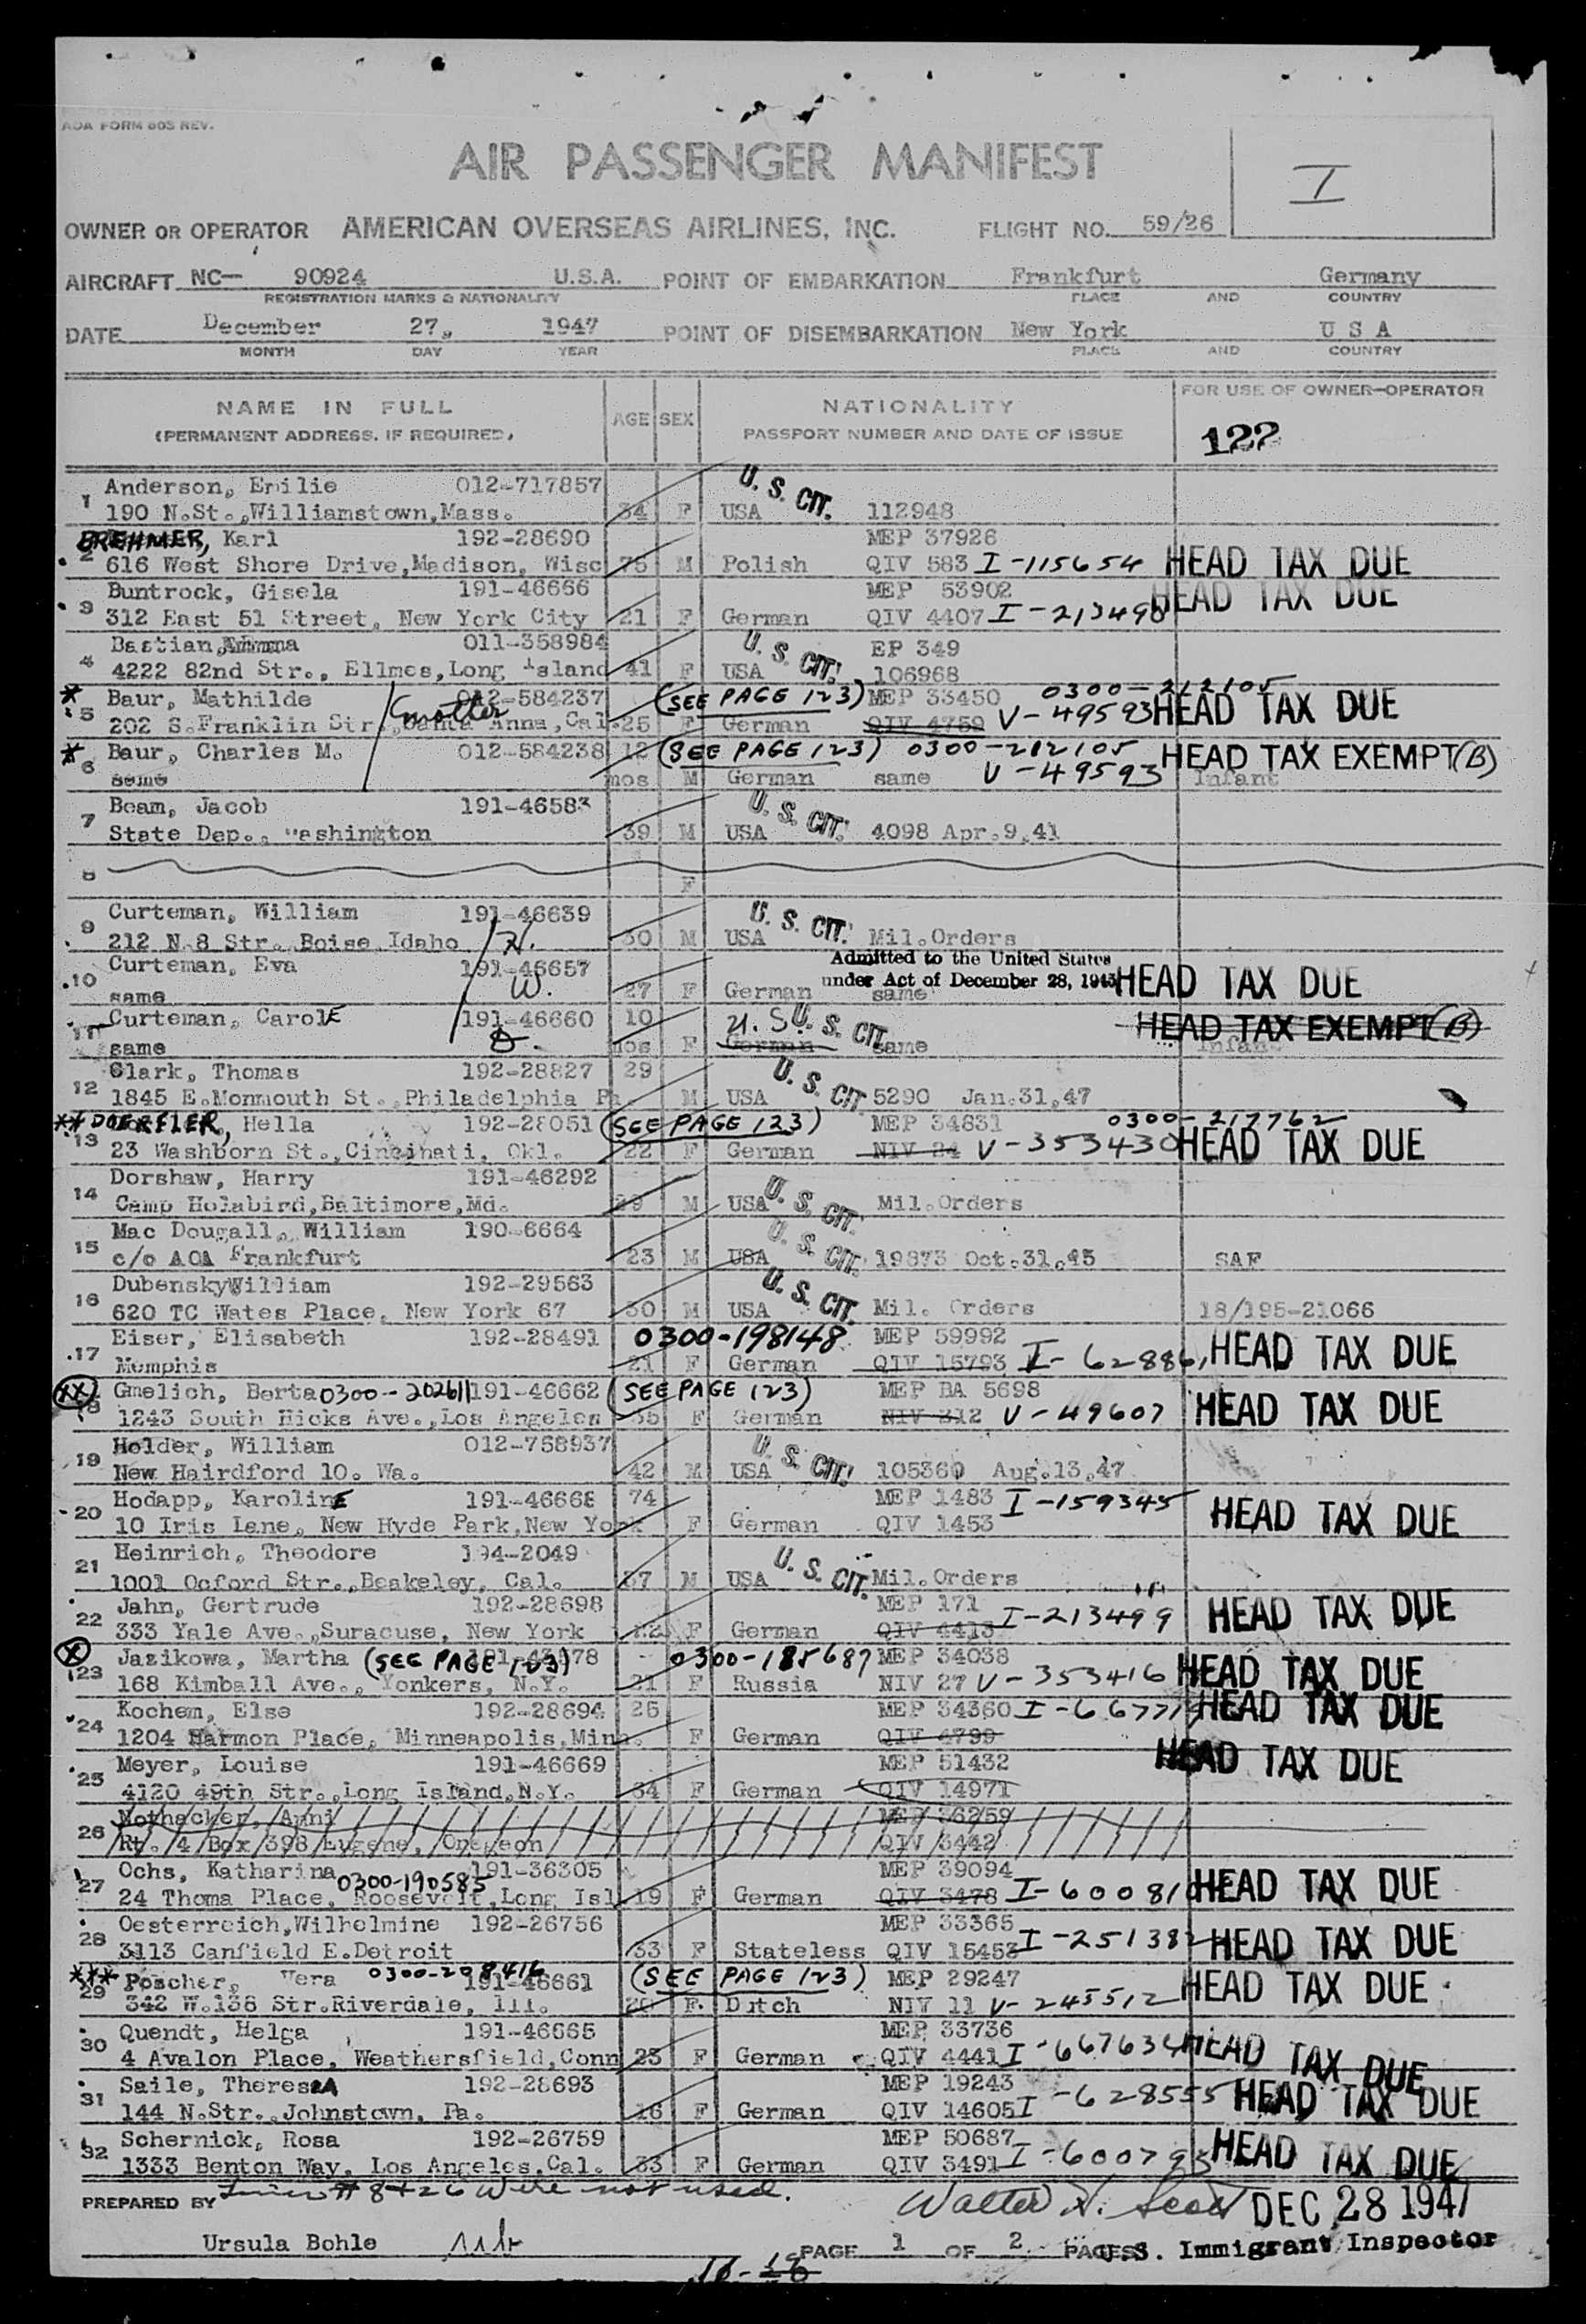 AOA FORM 603 REV.
AIR PASSENGER MANIFEST
I
OWNER OR OPERATOR AMERICAN OVERSEAS AIRLINES, INC. FLIGHT NO. 59/26
AIRCRAFT NC— 90924 U.S.A. POINT OF EMBARKATION Frankfurt Germany
REGISTRATION MARKS & NATIONALITY PLACE AND COUNTRY
DATE December 27, 1947 POINT OF DISEMBARKATION New York U S A
MONTH DAY YEAR PLACE AND COUNTRY
NAME IN FULL AGE SEX NATIONALITY FOR USE OF OWNER-OPERATOR
(PERMANENT ADDRESS, IF REQUIRED) PASSPORT NUMBER AND DATE OF ISSUE 122
1 Anderson, Emilie 012-717857 U. S. CIT.
190 N.St.,Williamstown,Mass. 34 F USA 112948
2 BREHMER, Karl 192-28690 MEP 37926
616 West Shore Drive,Madison, Wisc 75 M Polish QIV 583 I-115654 HEAD TAX DUE
3 Buntrock, Gisela 191-46666 MEP 53902 HEAD TAX DUE
312 East 51 Street, New York City 21 F German QIV 4407 I-213490
4 Bastian, 011-358984 U. S. CIT. EP 349
4222 82nd Str., Ellmes,Long Island 41 F USA 106968
* 5 Baur, Mathilde 012-584237 (SEE PAGE 123) MEP 33450 0300-212105
202 S.Franklin Str.,Santa Anna,Cal. mother 25 F German QIV 4759 V-49593 HEAD TAX DUE
* 6 Baur, Charles M. 012-584238 12 (SEE PAGE 123) 0300-212105 HEAD TAX EXEMPT (B)
same mos M German same V-49593 Infant
7 Beam, Jacob 191-46583 U. S. CIT.
State Dep., Washington 39 M USA 4098 Apr.9,41
8 F
9 Curteman, William 191-46639 U. S. CIT.
212 N 8 Str. Boise Idaho H. 30 M USA Mil.Orders
10 Curteman, Eva 191-46657 Admitted to the United States
same W. 27 F German same under Act of December 28, 1945 HEAD TAX DUE
11 Curteman, CarolE 191-46660 10 U.S. U. S. CIT. HEAD TAX EXEMPT (B)
same D. mos F German same Infant
12 Clark, Thomas 192-28827 29 U. S. CIT
1845 E.Monmouth St.,Philadelphia Pa M USA 5290 Jan.31,47
** 13 DOERFLER, Hella 192-28051 (SEE PAGE 123) MEP 34831 0300-217762
23 Washborn St.,Cincinati, Okl. 22 F German NIV 24 V-353430 HEAD TAX DUE
14 Dorshaw, Harry 191-46292 U. S. CIT.
Camp Holabird,Baltimore,Md. 29 M USA Mil.Orders
15 Mac Dougall, William 190-6664 U. S. CIT.
c/o AOA Frankfurt 23 M USA 19873 Oct.31,45 SAF
16 Dubensky William 192-29563 U. S. CIT.
620 TC Wates Place, New York 67 30 M USA Mil. Orders 18/195-21066
17 Eiser, Elisabeth 192-28491 0300-198148 MEP 59992
Memphis 21 F German QIV 15793 I-62886, HEAD TAX DUE
XX 18 Gmelich, Berta 0300-202611 191-46662 (SEE PAGE 123) MEP BA 5698
1243 South Hicks Ave.,Los Angeles 35 F German NIV 312 V-49607 HEAD TAX DUE
19 Holder, William 012-758937 U. S. CIT.
New Hairdford 10. Wa. 42 M USA 105360 Aug.13,47
20 Hodapp, KarolinE 191-46668 74 MEP 1483 I-159345 HEAD TAX DUE
10 Iris Lane, New Hyde Park,New York F German QIV 1453
21 Heinrich, Theodore 194-2049 U. S. CIT.
1001 Ocford Str.,Beakeley, Cal. 37 M USA Mil.Orders
22 Jahn, Gertrude 192-28698 MEP 171 I-213499 HEAD TAX DUE
333 Yale Ave.,Suracuse, New York 22 F German QIV 4413
X 23 Jazikowa, Martha (SEE PAGE 123) 0300-185687 MEP 34038
168 Kimball Ave., Yonkers, N.Y. 21 F Russia NIV 27 V-353416 HEAD TAX DUE
24 Kochem, Else 192-28694 25 MEP 34360 HEAD TAX DUE
1204 Harmon Place, Minneapolis,Minn. F German QIV 4799
25 Meyer, Louise 191-46669 MEP 51432 HEAD TAX DUE
4120 49th Str.,Long Island,N.Y. 34 F German QIV 14971
26 Nothacker, Anni MEP 36259
Rt. 4 Box 398 Eugene, Oregeon QIV 3442
27 Ochs, Katharina 0300-190585 191-36305 MEP 39094
24 Thoma Place, Roosevelt,Long Isl 19 F German QIV 3478 I-600810 HEAD TAX DUE
28 Oesterreich,Wilhelmine 192-26756 MEP 33365
3113 Canfield E.Detroit 33 F Stateless QIV 15453 I-251382 HEAD TAX DUE
*** 29 Poscher, Vera 0300-208416 191-46661 (SEE PAGE 123) MEP 29247 HEAD TAX DUE
342 W.136 Str.Riverdale, Ill. 20 F. Dutch NIV 11 V-245512
30 Quendt, Helga 191-46665 MEP 33736
4 Avalon Place, Weathersfield,Conn 23 F German QIV 4441 I-667634 HEAD TAX DUE
31 Saile, TheresIA 192-28693 MEP 19243
144 N.Str. Johnstown, Pa. 16 F German QIV 14605 I-628555 HEAD TAX DUE
32 Schernick, Rosa 192-26759 MEP 50687
1333 Benton Way, Los Angeles,Cal. 33 F German QIV 3491 I-600795 HEAD TAX DUE
PREPARED BY Lines # 8+26 were not used. Walter DEC 28 1947
Ursula Bohle PAGE 1 OF 2 PAGES U.S. Immigrant Inspector